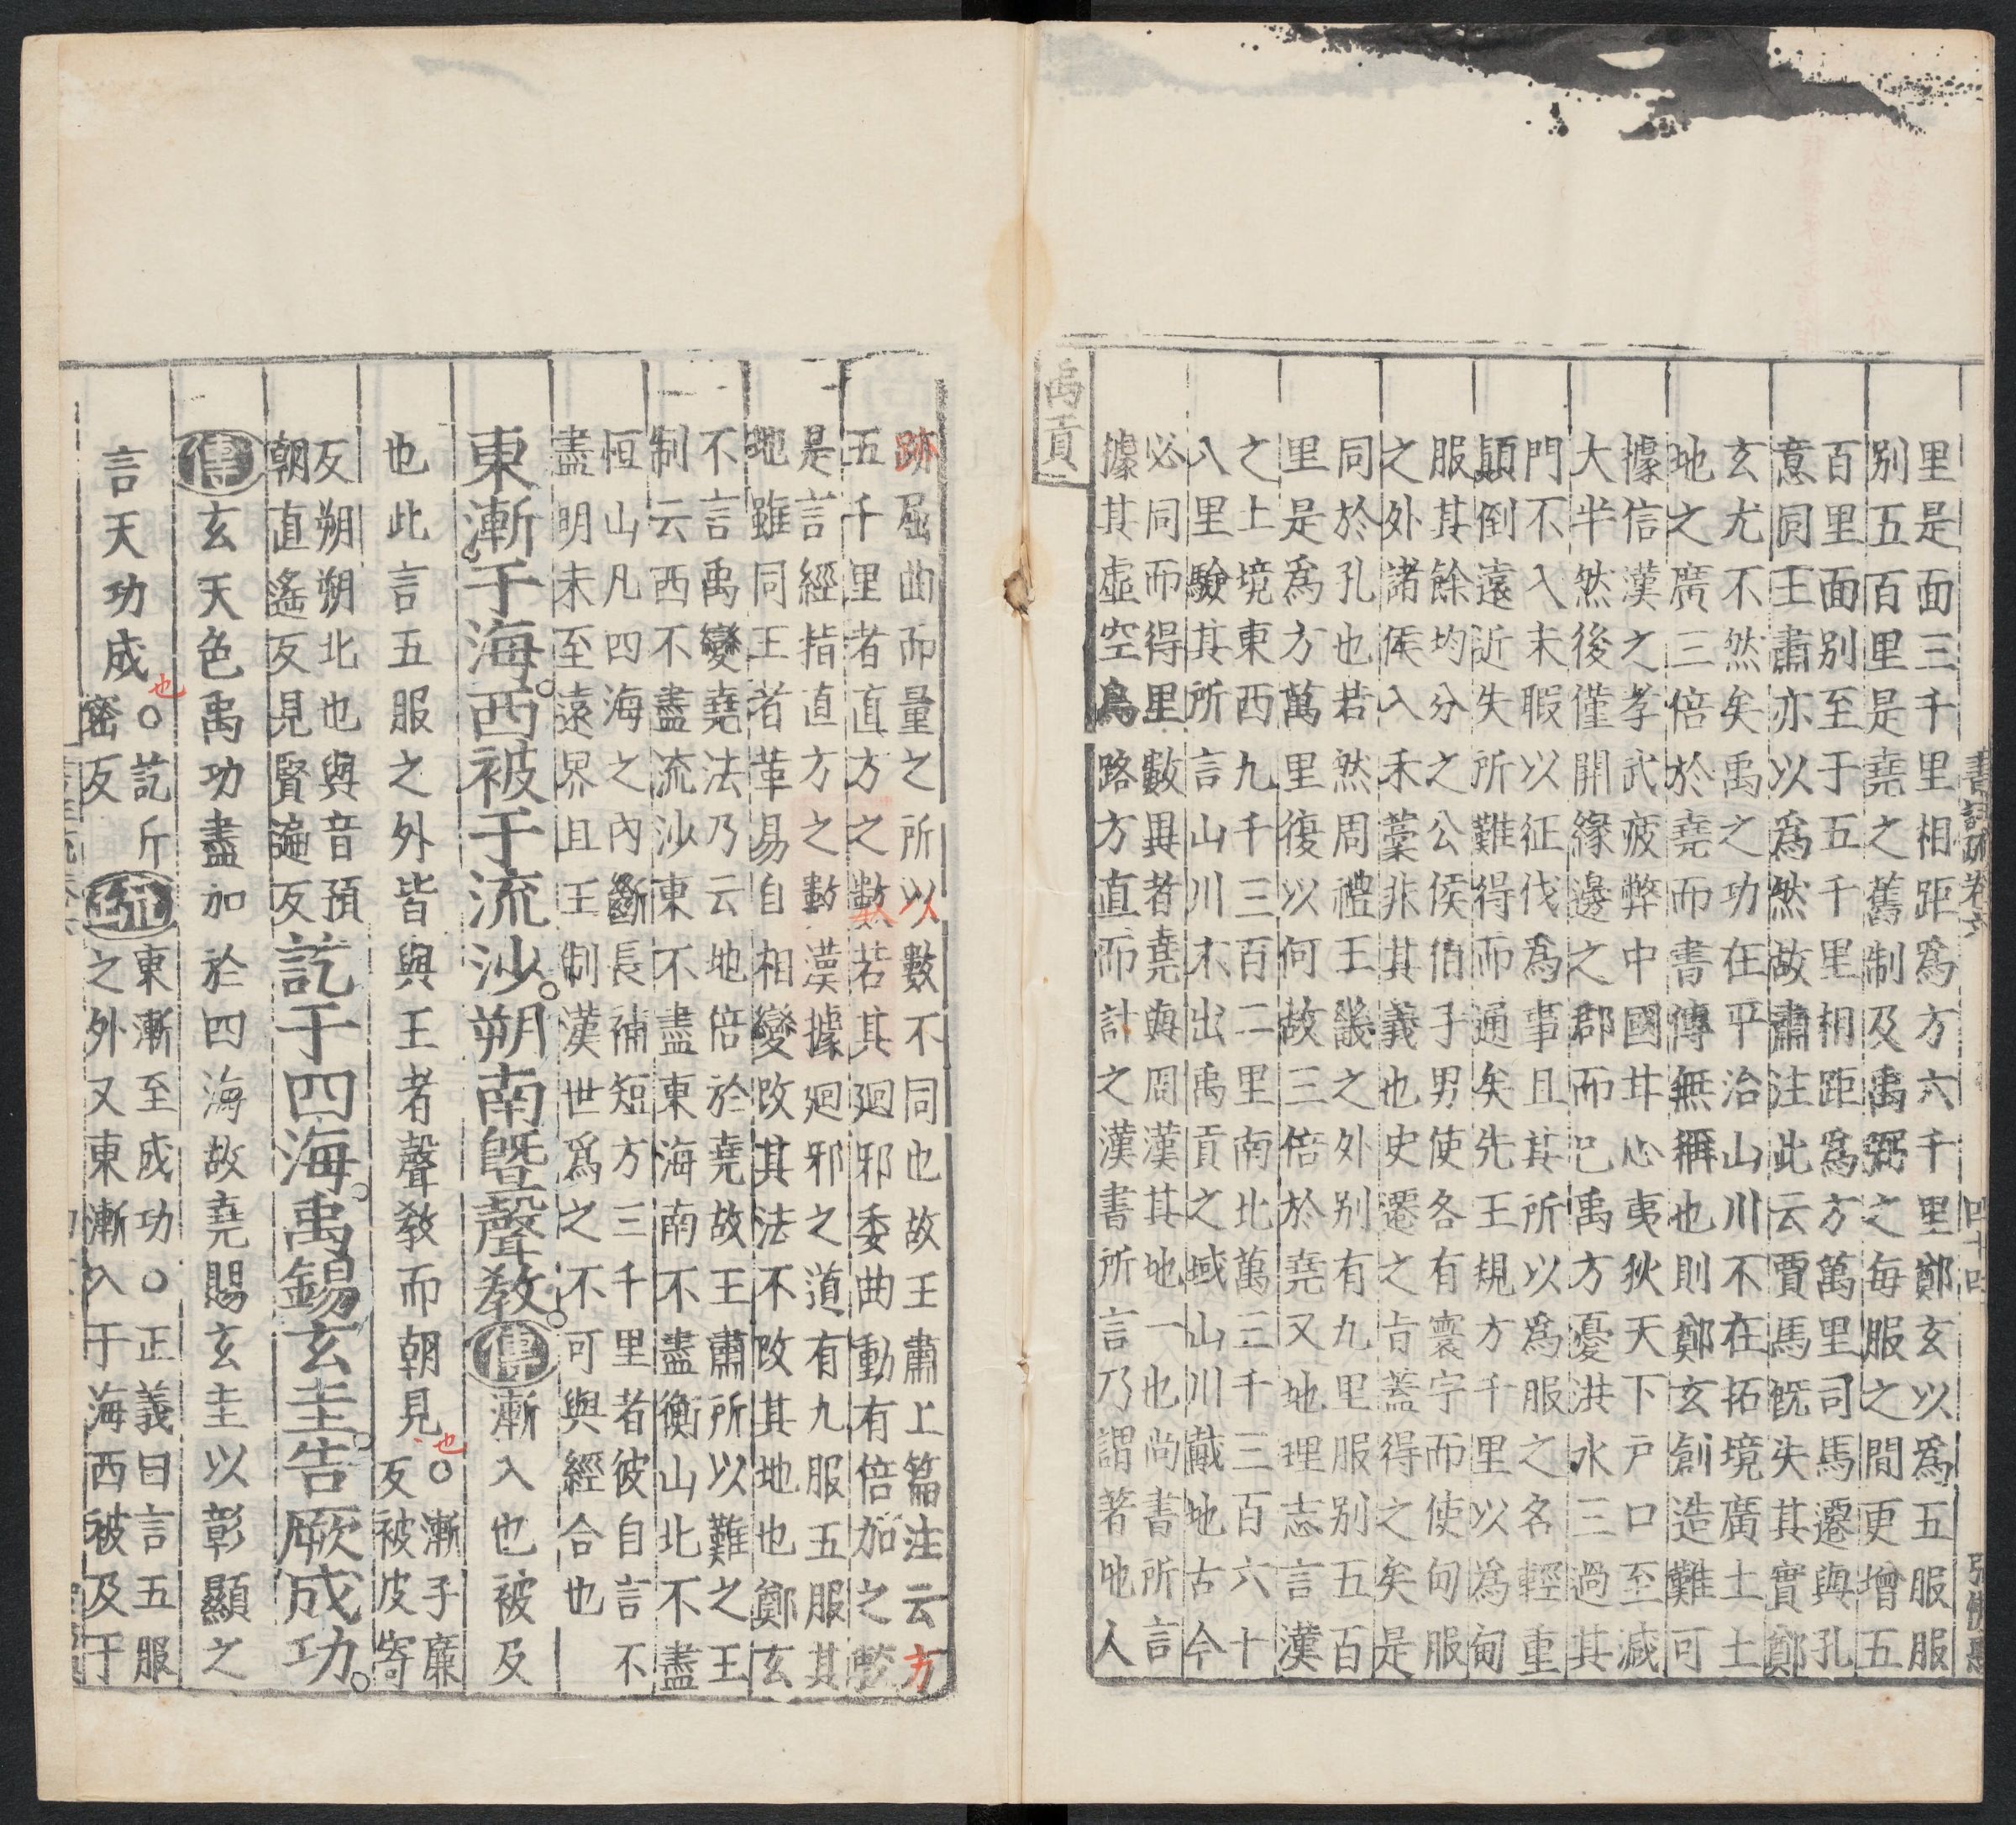 里是面三千里相距爲方六千里鄭玄以爲五服服
别五百里是堯之舊制及禹弼之每服之間更增五
百里面别至于五千里相距爲方萬里司馬遷與孔
意同王肅亦以爲然故肅注此云賈馬旣失其實鄭
玄尤不然矣禹之功在平治山川不在拓境廣土土
地之廣三倍於堯而書傳無稱也則鄭玄創造難可
據信漢之孝武疲弊中國甘心夷狄天下户口至減
大半然後僅開緣邊之郡而已禹方憂洪水三過其
門不入未暇以征伐爲事且其所以爲服之名輕重
顛倒遠近失所難得而通矣先王規方千里以爲甸
服其餘均分之公侯伯子男使各有寰宇而使甸服
之外諸侯入禾藁非其義也史遷之旨蓋得之矣是
同於孔也若然周禮王畿之外别有九里服别五百
里是爲方萬里復以何故三倍於堯又地理志言漢
之土境東西九千三百二里南北萬三千三百六十
八里驗其所言山川不出禹貢之域山川戴地古今
必同而得里數異者堯與周漢其地一也尚書所言
據其虛空鳥路方直而計之漢書所言乃謂著地人
禹貢
跡屈曲而量之所以數不同也故王肅上篇注云方
五千里者直方之數若其廻邪委曲動有倍加之較
是言經指直方之數漢據廻邪之道有九服五服其
地雖同王者革易自相變改其法不改其地也鄭玄
不言禹變堯法乃云地倍於堯故王肅所以難之王
制云西不盡流沙東不盡東海南不盡衡山北不盡
恒山凡四海之內斷長補短方三千里者彼自言不
盡明未至遠界且王制漢世爲之不可與經合也
東漸于海。西被于流沙。朔南曁聲敎。傳漸入也被及
也此言五服之外皆與王者聲敎而朝見也○漸子廉
反被皮寄
反朔朔北也與音預
朝直遙反見賢遍反
訖于四海。禹錫玄圭。告厥成功。
傳玄天色禹功盡加於四海故堯賜玄圭以彰顯之
言天功成也○訖斤
密反
疏東漸至成功○正義曰言五服
之外又東漸入于海西被及于